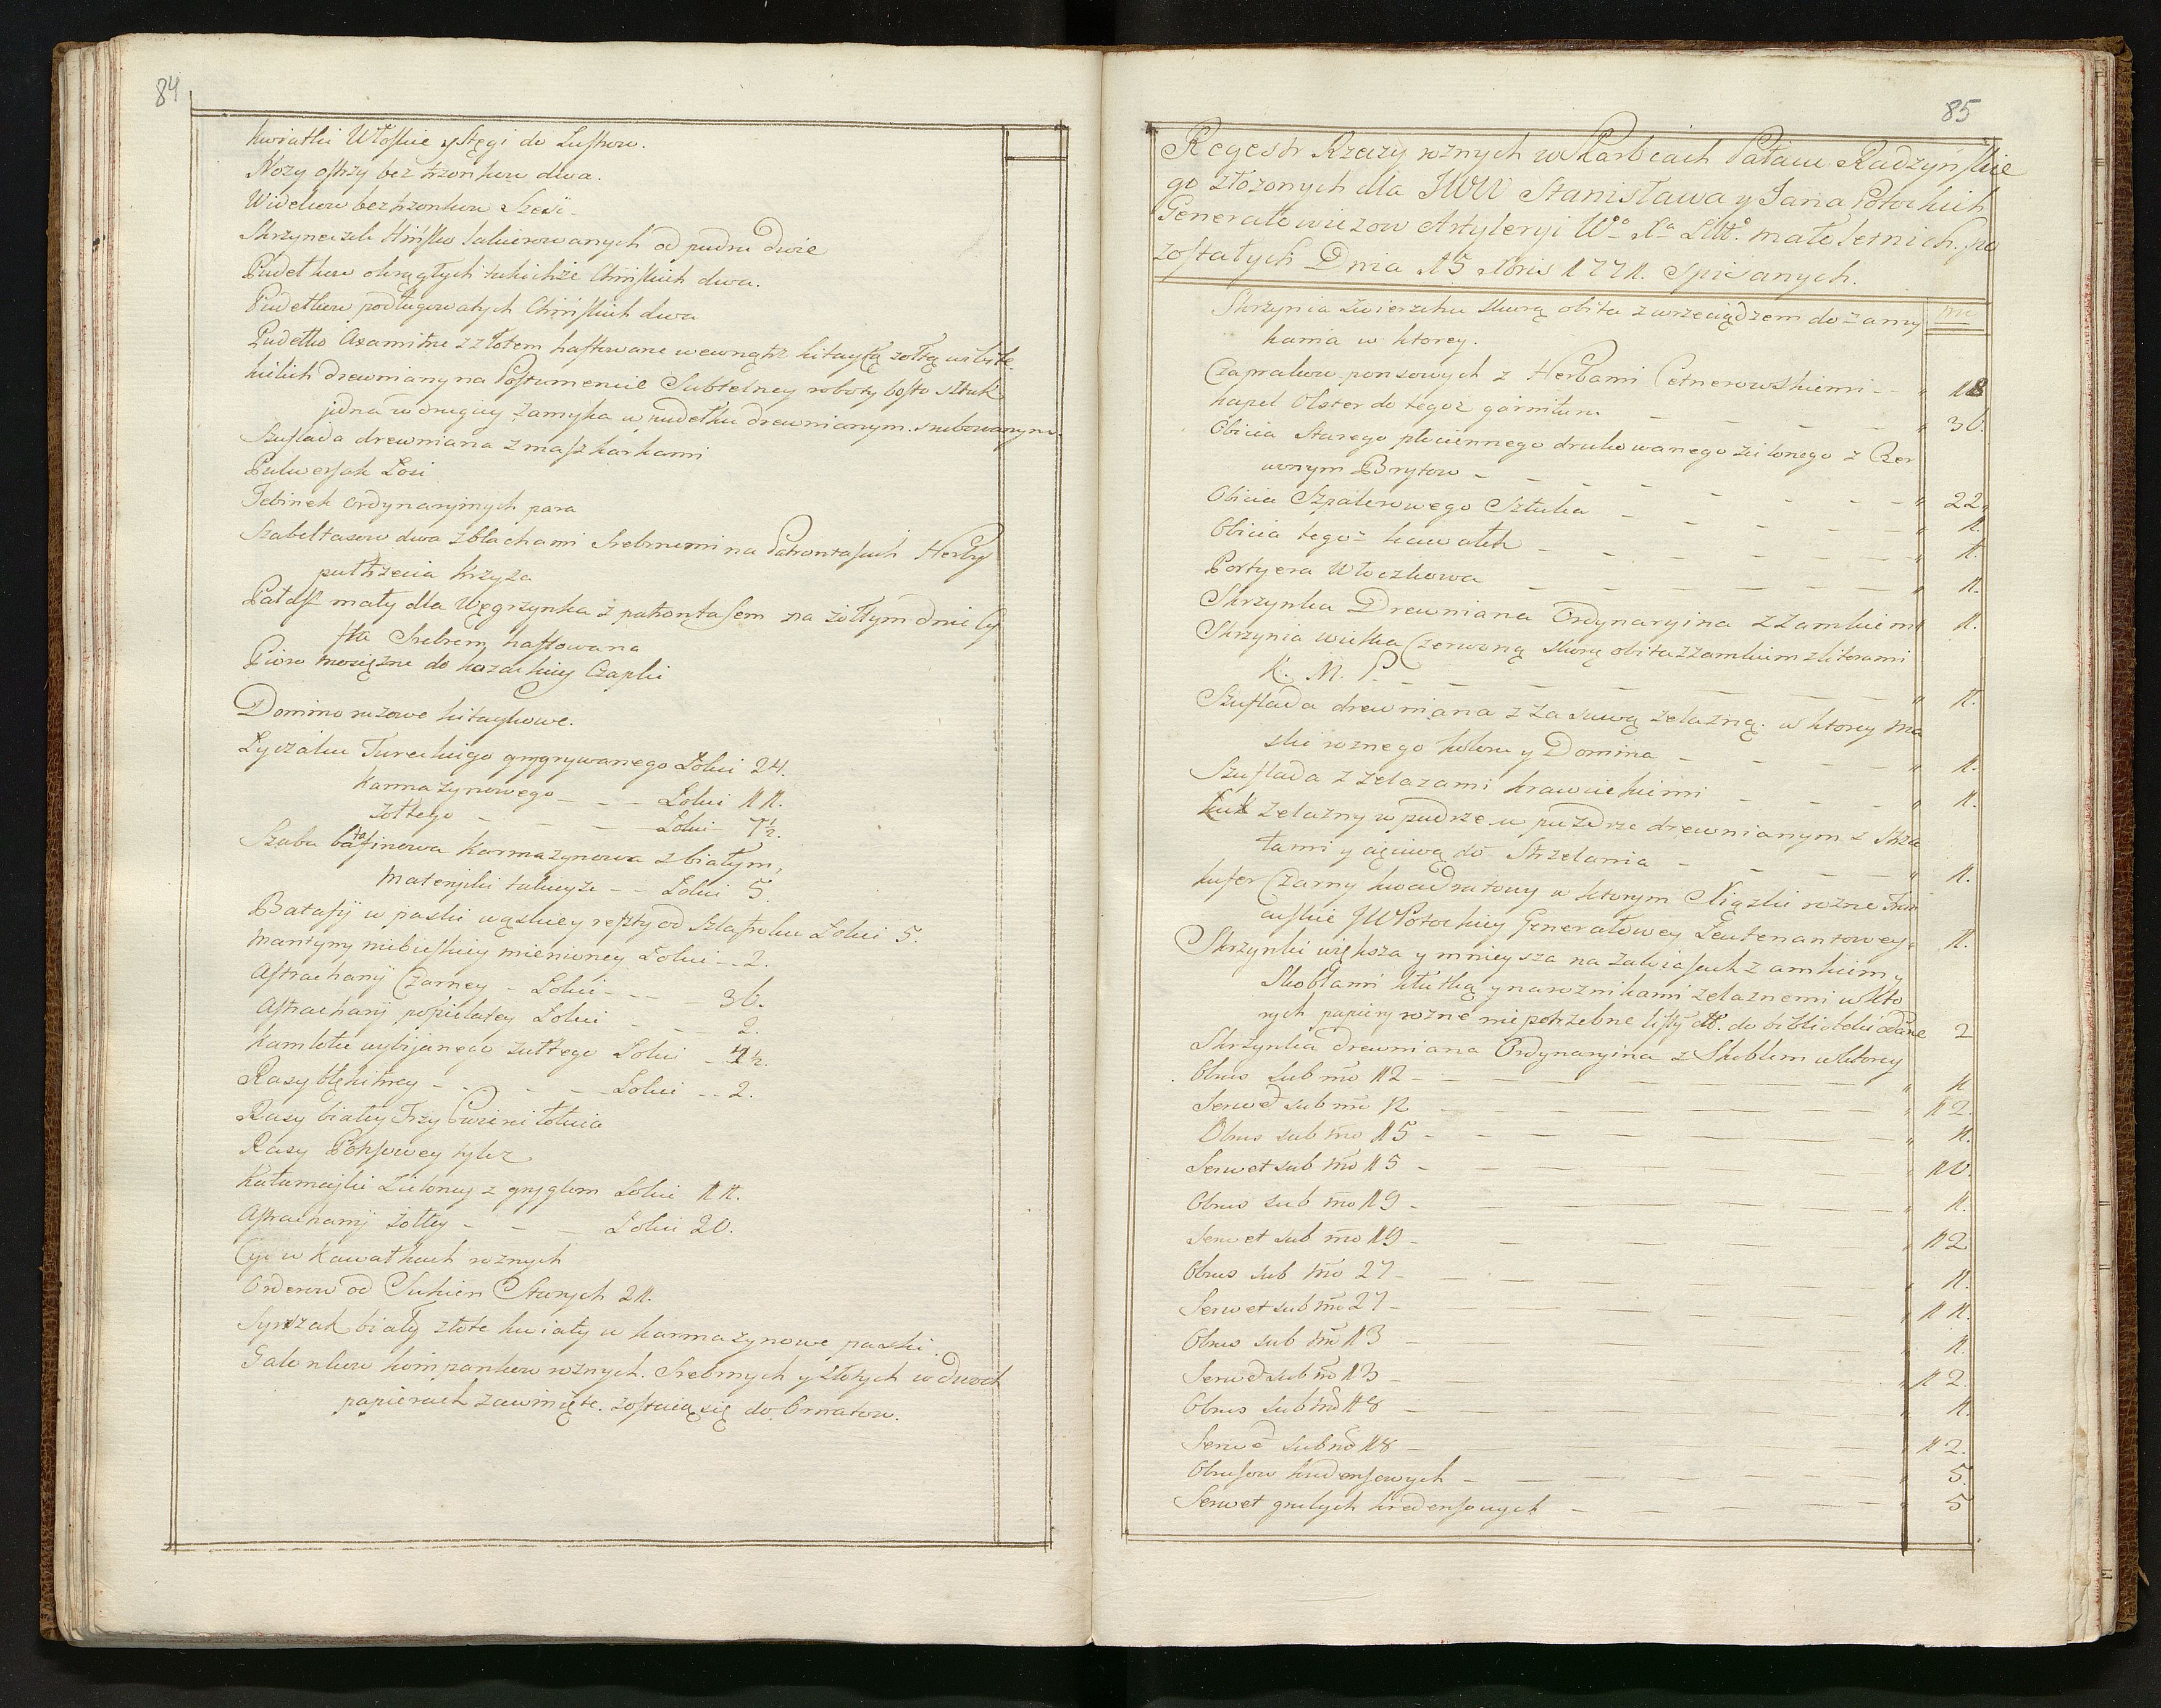 84
Kwiatki Włoskie y Stęgi do Lustrow.
Nozy ostrzy bez trzonkow dwa.
Widelcow bez trzonkow Szesć.
Skrzyneczek Hińsko lakierowanych od pudru dwie
Pudełkow okrągłych takichże Chińskich dwa.
Pudełkow podługowatych Chińskich dwa
Pudełko Axamitne z złotem haftowane wewnątrz kitayką zołtą wybite.
kielich drewniany na Postumencie Subtelney roboty bo sto sztuk
jedna w drugiey zamyka w pudełku drewnianym srubowanym.
Szuflada drewniana z maszkarkami
Pulwersak Łosi
Tebinek ordynaryinych para
Szabeltasow dwa z blachami Srebrnemi na Patrontasach Herby
pułtrzecia krzyża
Pałasz mały dla Węgrzynka z patrontasem na żołtym dnie
Srebrem haftowana
Pioro mosiężne do kozackiey Czapki
Domino rużowe kitaykowe.
Łyczaku Tureckiego grygrywanego Łokci 24.
Karmazynowego - - - Łokci 11.
żołtego - - - Łokci 7½.
Szuba bafinowa karmazynowa z białym,
Materyiki takieyże - - Łokci 5.
Batasÿ w paski wąskiey reszty od Szlafroku Łokci 5.
Mantyny niebieskiey mienioney Łokci - - 2.
Astrachanÿ Czarney - Łokci - - - 36.
Astrachanÿ popielatey Łokci - - - 2.
Kamlotu wybijanego żułtego Łokci - 4½.
Rasy błękitney - - - - Łokci - - 2.
Rasy białey Trzy Cwierci łokcia
Rasy Pąsowey tylez
Kałamajki Zieloney z gryglem Łokci 11.
Astrachanÿ żołtey - - - Łokci 20.
Cyc w Kawałkach roznych
Orderow od Sukien Starych 21.
Syrszak biały złote kwiaty w karmazynowe paski.
Galonkow kompankow roznych. Srebrnych y złotych w dwoch
papierach zawinięte. zostaią się do Ornatow.
85
Regestr Rzeczy roznych w Skarbcach Pałacu Radzyńskie
go złożonych dla JWW Stanisława y Jana Potockich
Generałowiczow Artyleryi Wo. Xa. Litto. małoletnich. po
zostałych Dnia 15 1771. Spisanych.
Skrzynia zwierzchu skurą obita z wrzeciądzem do zamy
kania w ktorey.
Czaprakow ponsowych z Herbami Cetnerowskiemi - - " 18
kapel Olster do tegoż garnituru - - - - " 36.
Obicia Starego płuciennego drukowanego zielonego z Czer
wonym Brytow - - - - - - - - " 22.
Obicia Szpalerowego Sztuka - - - - - " 1.
Obicia tegoż kawałek - - - - - - " 1.
Portyera Włoczkowa - - - - - - " 1.
Skrzynka Drewniana Ordynaryina z Zamkiem 1.
Skrzynia wielka Czerwoną skurą obita z zamkiem z literami
K. M. P. - - - - - - - - " 1.
Szuflada drewniana z Zasuwą żelazną. w ktorey ma
ski roznego koloru y Domina - - - - - " 1.
Szuflada z żelazami krawieckiemi - - - - " 1.
Łuk żelazny w pudrze w puzdrze drewnianym z Strza
łami y cięciwą do Strzelania - - - - " 1.
Kufer Czarny kwadratowy w ktorym Xiązki rozne Fran
cuskie JW Potockiey Generałowey Leutenantowey. 1.
Skrzynki większa y mnieysza na zawiasach z amkiem y
Skoblami klutką y narożnikami żelaznemi w kto
rych papiery rozne niepotrzebne listy do biblioteki odane 2
Skrzynka drewniana Ordynaryina z Skoblem w ktorey
Obrus sub no 12 - - - - - - " 1
Serwet sub no 12 - - - - - - " 12.
Obrus sub no 15 - - - - - - " 1.
Serwet sub no 15 - - - - - - " 10.
Obrus sub no 19 - - - - - - " 1.
Serwet sub no 19 - - - - - - " 12
Obrus sub no 27 - - - - - - " 1.
Serwet sub no 27 - - - - - - " 11.
Obrus sub no 13 - - - - - - " 1.
Serwet sub no 13 - - - - - - " 12.
Obrus sub no 18 - - - - - - " 1.
Serwet sub no 18 - - - - - - " 12.
Obrusow kredensowych - - - - - " 5.
Serwet grubych kredensowych - - - - " 5